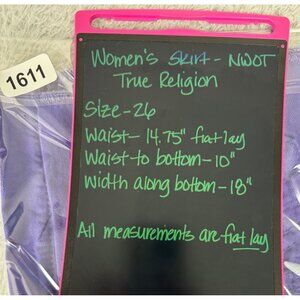 1611
Women's Skirt - NWOT
True Religion
Size - 26
Waist - 14.75" flat lay
Waist to bottom - 10"
Width along bottom - 18"
All measurements are flat lay